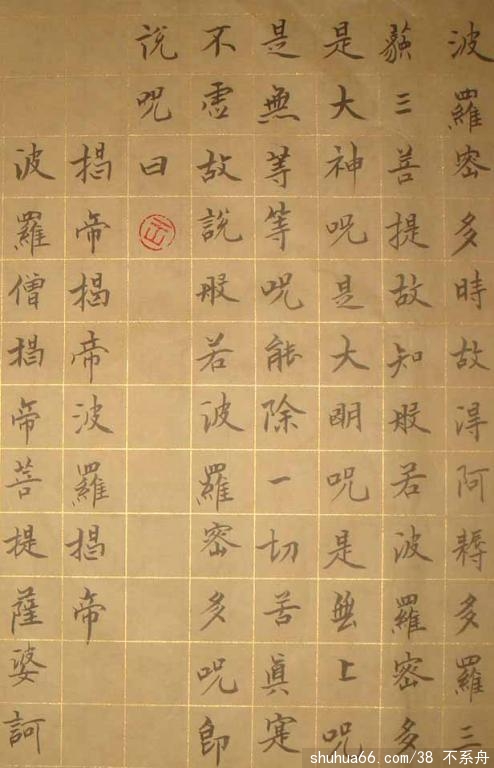 波羅密多時故得阿耨多羅三
藐三菩提故知般若波羅密多
是大神呪是大明呪是無上呪
是無等等呪能除一切苦真寔
不虛故說般若波羅密多呪即
說呪曰
揭帝揭帝波羅揭帝
波羅僧揭帝菩提薩婆訶
shuhua66.com/38 不系舟